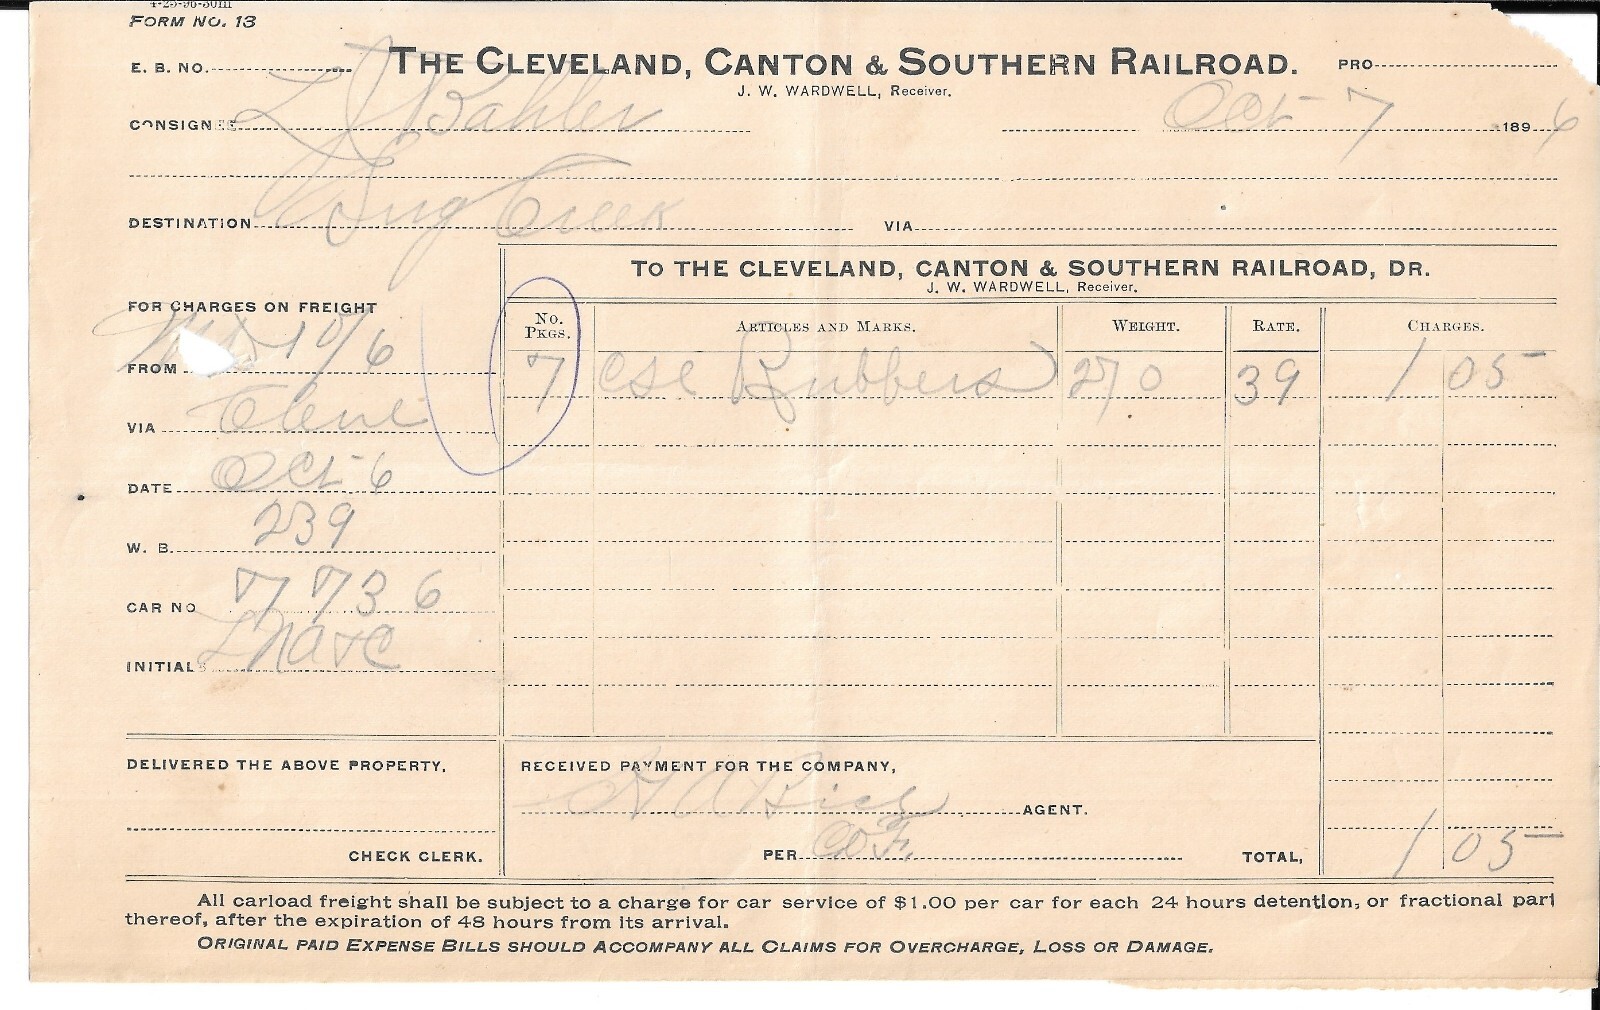 4-25-96-50m
FORM NO. 13
E. B. NO. THE CLEVELAND, CANTON & SOUTHERN RAILROAD. PRO
J. W. WARDWELL, Receiver.
CONSIGNEE L J Bahler Oct 7 1896
DESTINATION Creek VIA
TO THE CLEVELAND, CANTON & SOUTHERN RAILROAD, DR.
J. W. WARDWELL, Receiver.
FOR CHARGES ON FREIGHT
NO. PKGS. ARTICLES AND MARKS. WEIGHT. RATE. CHARGES.
FROM 10/6
7 cse Rubbers 270 39 1 05
VIA Cleve
DATE Oct 6
W. B. 239
CAR NO 7736
INITIALS LNA&C
DELIVERED THE ABOVE PROPERTY,
CHECK CLERK.
RECEIVED PAYMENT FOR THE COMPANY,
AGENT.
PER TOTAL, 1 05
All carload freight shall be subject to a charge for car service of $1.00 per car for each 24 hours detention, or fractional part
thereof, after the expiration of 48 hours from its arrival.
ORIGINAL PAID EXPENSE BILLS SHOULD ACCOMPANY ALL CLAIMS FOR OVERCHARGE, LOSS OR DAMAGE.